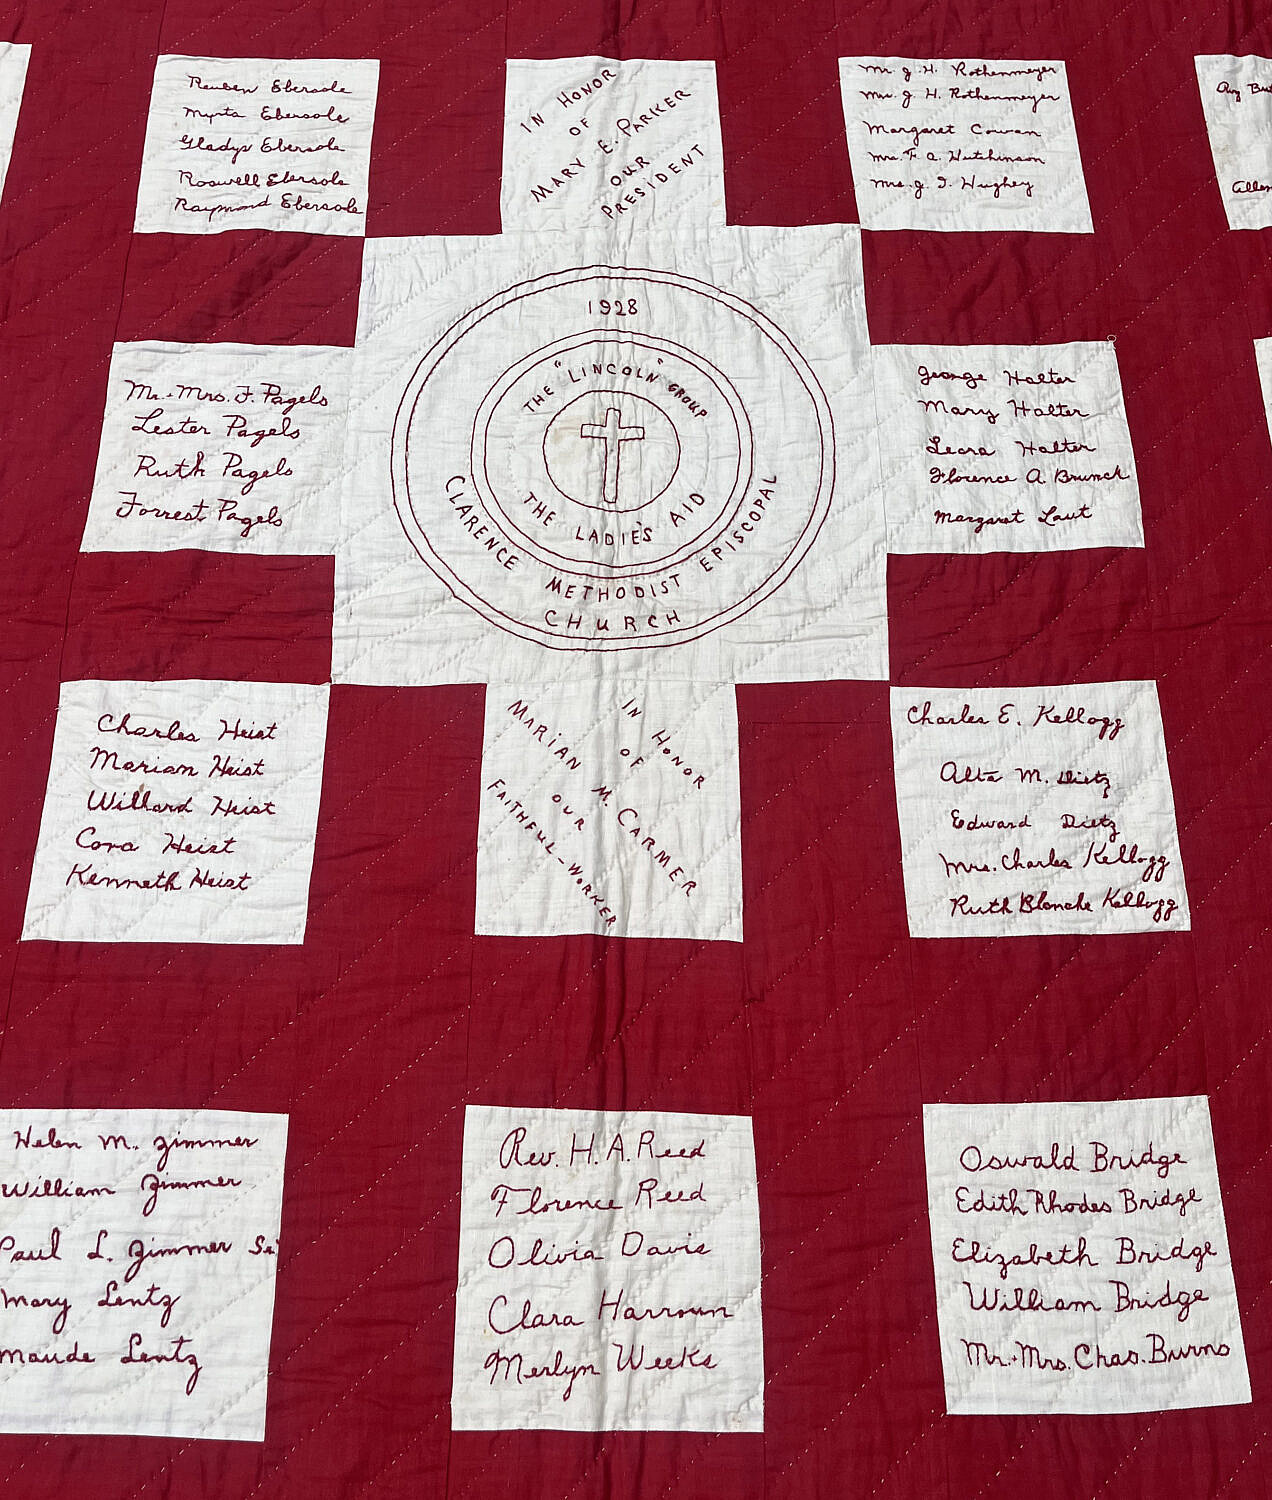 Reuben Ebersole
Myrta Ebersole
Gladys Ebersole
Roswell Ebersole
Raymond Ebersole
IN HONOR
OF
MARY E. PARKER
OUR
PRESIDENT
Mr. J. H. Rothenmeyer
Mrs. J. H. Rothenmeyer
Margaret Cowan
Mrs. F. A. Hutchinson
Mrs. J. I. Hughey
Allen
Mr. Mrs. F. Pagels
Lester Pagels
Ruth Pagels
Forrest Pagels
1928
THE "LINCOLN" GROUP
THE LADIE'S AID
CLARENCE METHODIST EPISCOPAL
CHURCH
George Halter
Mary Halter
Leora Halter
Florence A. Brunck
Margaret Laut
Charles Heist
Marian Heist
Willard Heist
Cora Heist
Kenneth Heist
IN HONOR
OF
MARIAN M. CARMER
OUR
FAITHFUL-WORKER
Charles E. Kellogg
Alta M. Dietz
Edward Dietz
Mrs. Charles Kellogg
Ruth Blanche Kellogg
Helen M. Zimmer
William Zimmer
Paul L. Zimmer Sr.
Mary Lentz
Maude Lentz
Rev. H. A. Reed
Florence Reed
Olivia Davis
Clara Harroun
Merlyn Weeks
Oswald Bridge
Edith Rhodes Bridge
Elizabeth Bridge
William Bridge
Mr. Mrs. Chas. Burns